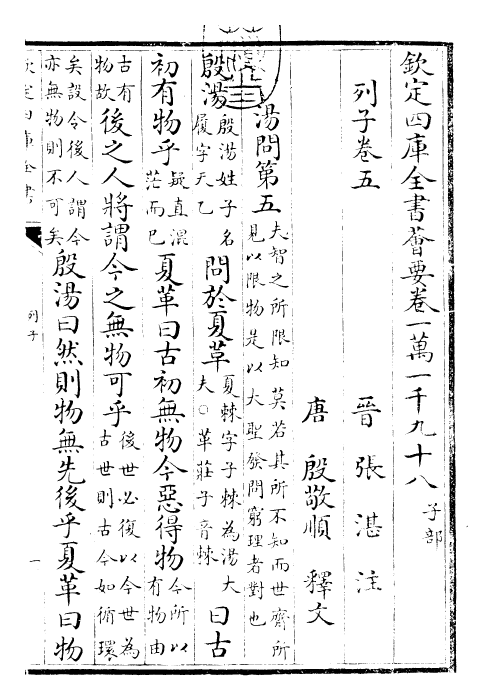 欽定四庫全書薈要卷一萬一千九十八 子部
列子卷五
晉 張湛 注
唐 殷敬順 釋文
湯問第五 夫智之所限知莫若其所不知而世齊所
見以限物是以大聖發問窮理者對也
殷湯 殷湯姓子名
履字天乙 問於夏革 夏棘字子棘為湯大
夫○革莊子音棘 曰古
初有物乎 疑直混
茫而已 夏革曰古初無物今惡得物 今所以
有物由
古有
物故 後之人將謂今之無物可乎 後世必復以今世為
古世則古今如循環
矣設令後人謂今
亦無物則不可矣 殷湯曰然則物無先後乎夏革曰物
欽定四庫全書
列子
一